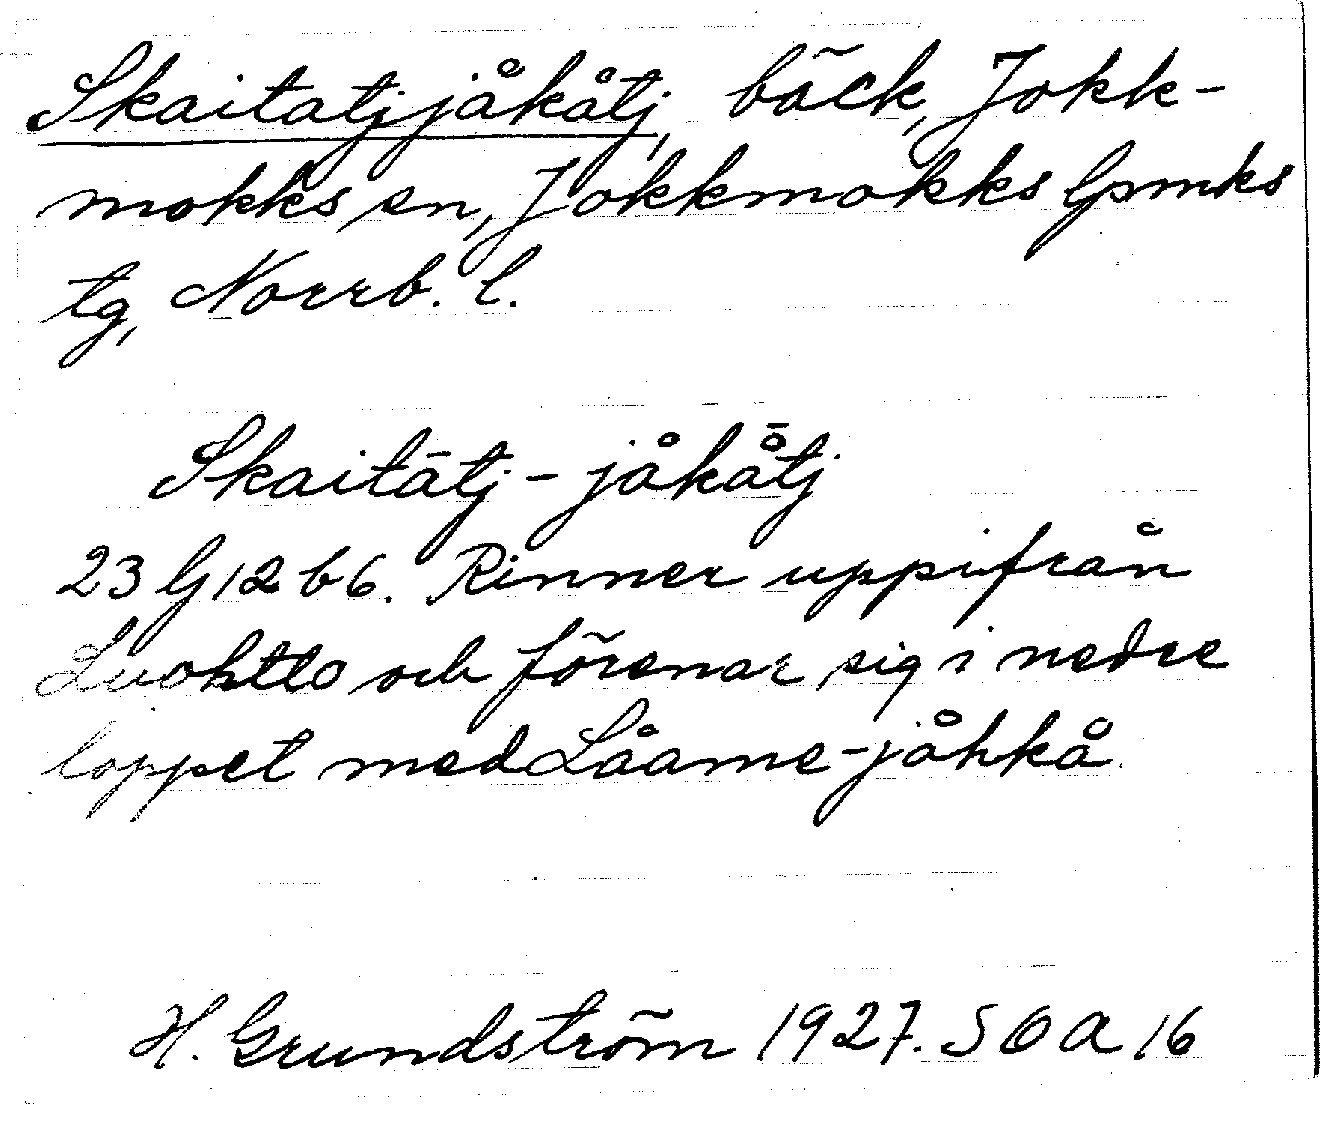 Skaitatjjåkåtj, bäck, Jokk-
mokks sn, Jokkmokks lpmks
tg, Norrb. l.
Skaitātj-jåkå̄tj
23 G 12 b 6. Rinner uppifrån
Luohtto och förenar sig i nedre
loppet med Låame-jåhkå.
H. Grundström 1927. SOA 16